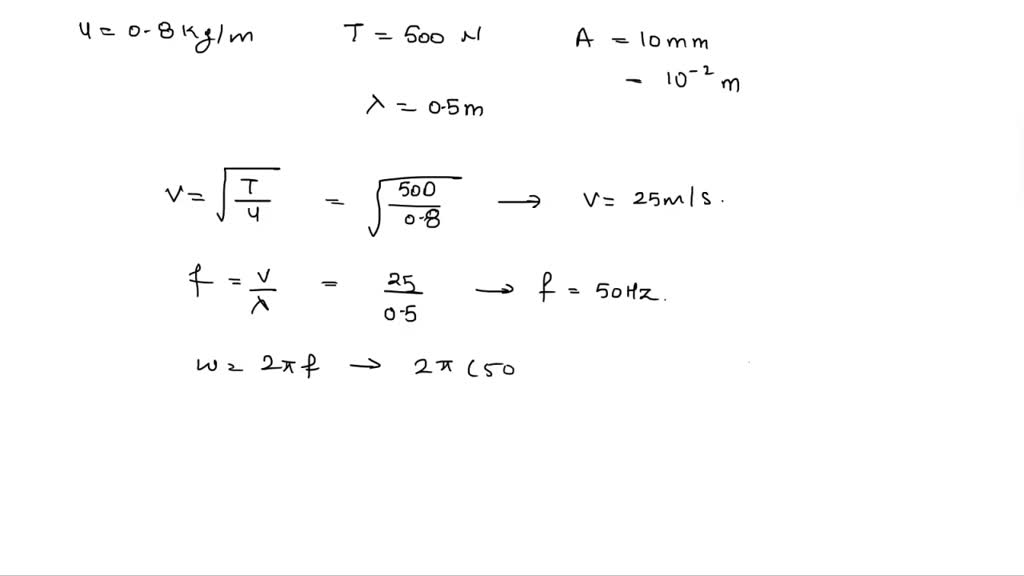 μ = 0.8 kg/m    T = 500 N    A = 10 mm
= 10⁻² m
λ = 0.5 m
v = √(T/μ) = √(500/0.8) → v = 25 m/s.
f = v/λ = 25/0.5 → f = 50 Hz.
ω = 2πf → 2π(50